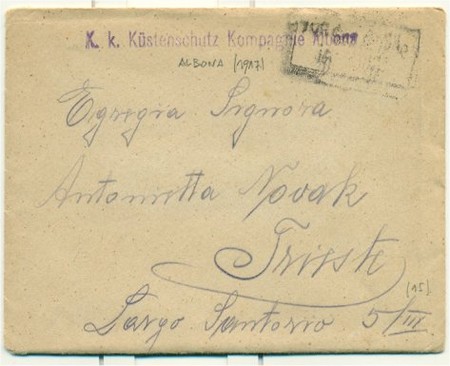 K. k. Küstenschutz Kompagnie Albona
ALBONA (1917)
Egregia Signora
Antonietta Novak
Trieste
(15)
Largo Santorio 5/III